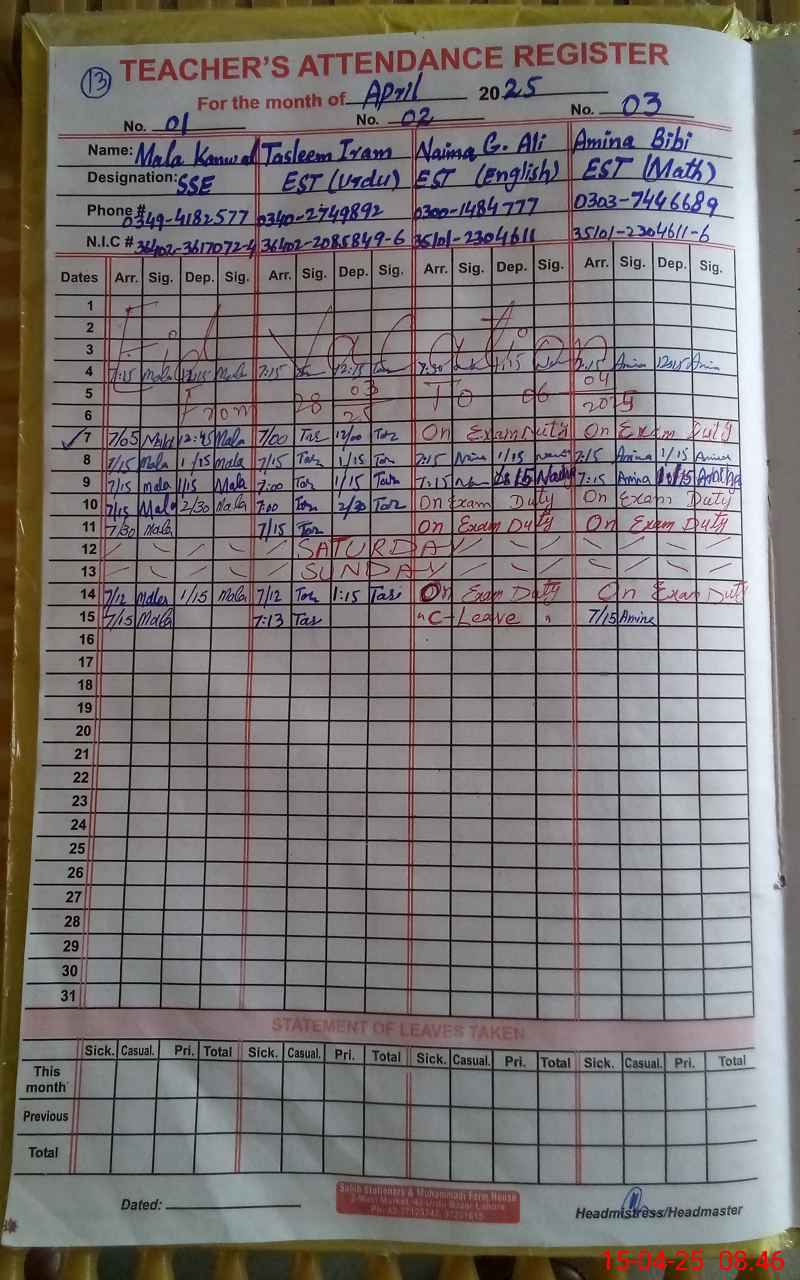 13
TEACHER'S ATTENDANCE REGISTER
For the month of April 2025
No. 01 No. 02 No. 03
Name: Mala Kanwal Tasleem Iram Naima G. Ali Amina Bibi
Designation: SSE EST (Urdu) EST (English) EST (Math)
Phone # 0349-4182577 0340-2749892 0300-1484777 0303-7446689
N.I.C # 36402-3617072-4 36402-2085849-6 35101-2304611 35101-2304611-6
Dates Arr. Sig. Dep. Sig. Arr. Sig. Dep. Sig. Arr. Sig. Dep. Sig. Arr. Sig. Dep. Sig.
1
2
3 Eid Vacation
4 7:15 Mala 12:15 Mala 7:15 12:15 7:30 1:15 7:15 Amina 12:15 Amina
5 03 04
6 From 28 25 To 06 2025
7 7/05 12:45 Mala 7/00 Tas 12/00 Tas On Exam Duty On Exam Duty
8 7/15 Mala 1/15 Mala 7/15 Tas 1/15 Tas 7:15 1/15 7:15 Amina 1/15 Amina
9 7/15 Mala 1/15 Mala 7:00 Tas 1/15 Tas 7:15 15 7:15 Amina 15
10 7/15 Mala 2/30 Mala 7:00 Tas 2/30 Tas On Exam Duty On Exam Duty
11 7/30 Mala 7/15 Tas On Exam Duty On Exam Duty
12 SATURDAY
13 SUNDAY
14 7/12 Mala 1/15 Mala 7/12 Tas 1:15 Tasi On Exam Duty On Exam Duty
15 7/15 Mala 7:13 Tas "C-Leave" 7/15 Amina
16
17
18
19
20
21
22
23
24
25
26
27
28
29
30
31
STATEMENT OF LEAVES TAKEN
Sick. Casual. Pri. Total Sick. Casual. Pri. Total Sick. Casual. Pri. Total Sick. Casual. Pri. Total
This month
Previous
Total
Dated:
Salih Stationers & Muhammadi Form House
Headmistress/Headmaster
15-04-25 08:46